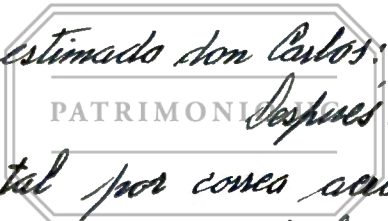 estimado don Carlos:
PATRIMONIO UC
Después
tal por correa acu